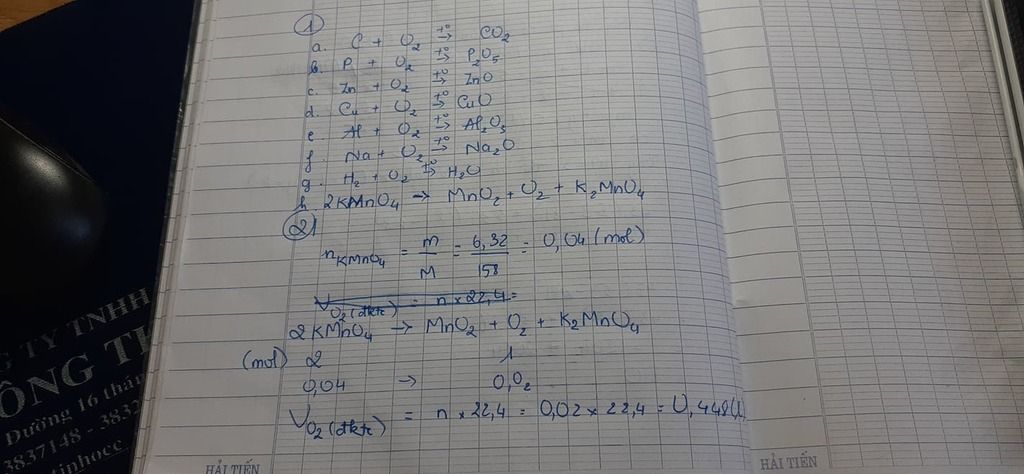 1
a. C + O₂ →(t°) CO₂
b. P + O₂ →(t°) P₂O₅
c. Zn + O₂ →(t°) ZnO
d. Cu + O₂ →(t°) CuO
e. Al + O₂ →(t°) Al₂O₃
f. Na + O₂ →(t°) Na₂O
g. H₂ + O₂ →(t°) H₂O
h. 2KMnO₄ → MnO₂ + O₂ + K₂MnO₄
2
n KMnO₄ = m/M = 6,32/158 = 0,04 (mol)
V O₂ (đktc) = n × 22,4 =
2KMnO₄ → MnO₂ + O₂ + K₂MnO₄
(mol) 2 1
0,04 → 0,02
V O₂ (đktc) = n × 22,4 = 0,02 × 22,4 = 0,448 (l)
HẢI TIẾN
HẢI TIẾN
G TY TNHH
ÔNG TH
Dường 16 thán
3837148 - 383
tinhocc